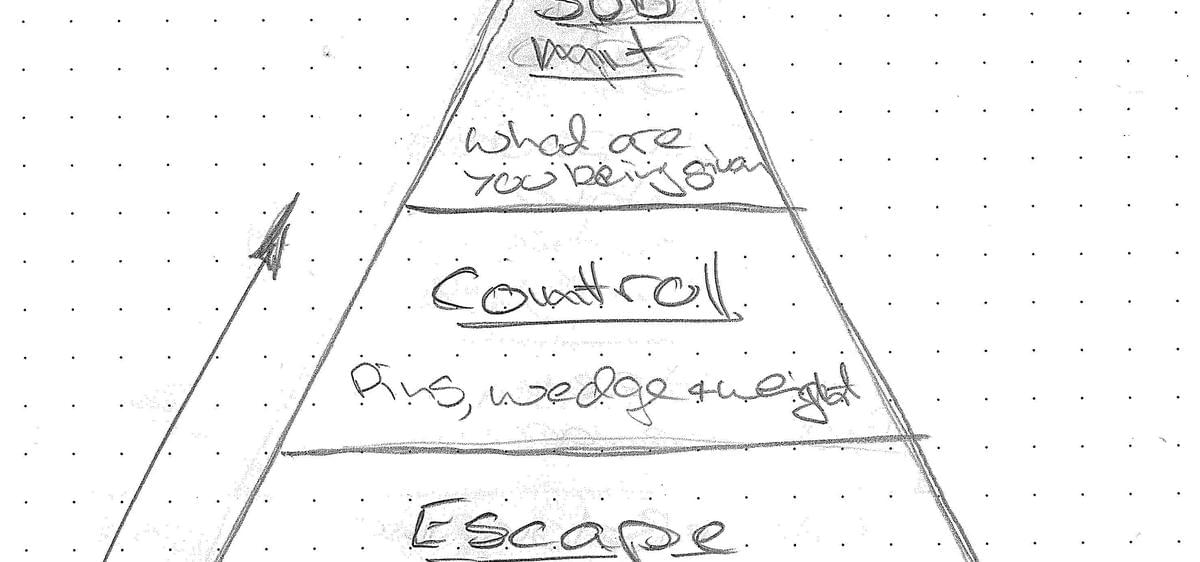 SUB
what are
you being given
Controll
Pins, wedge + weight
Escape